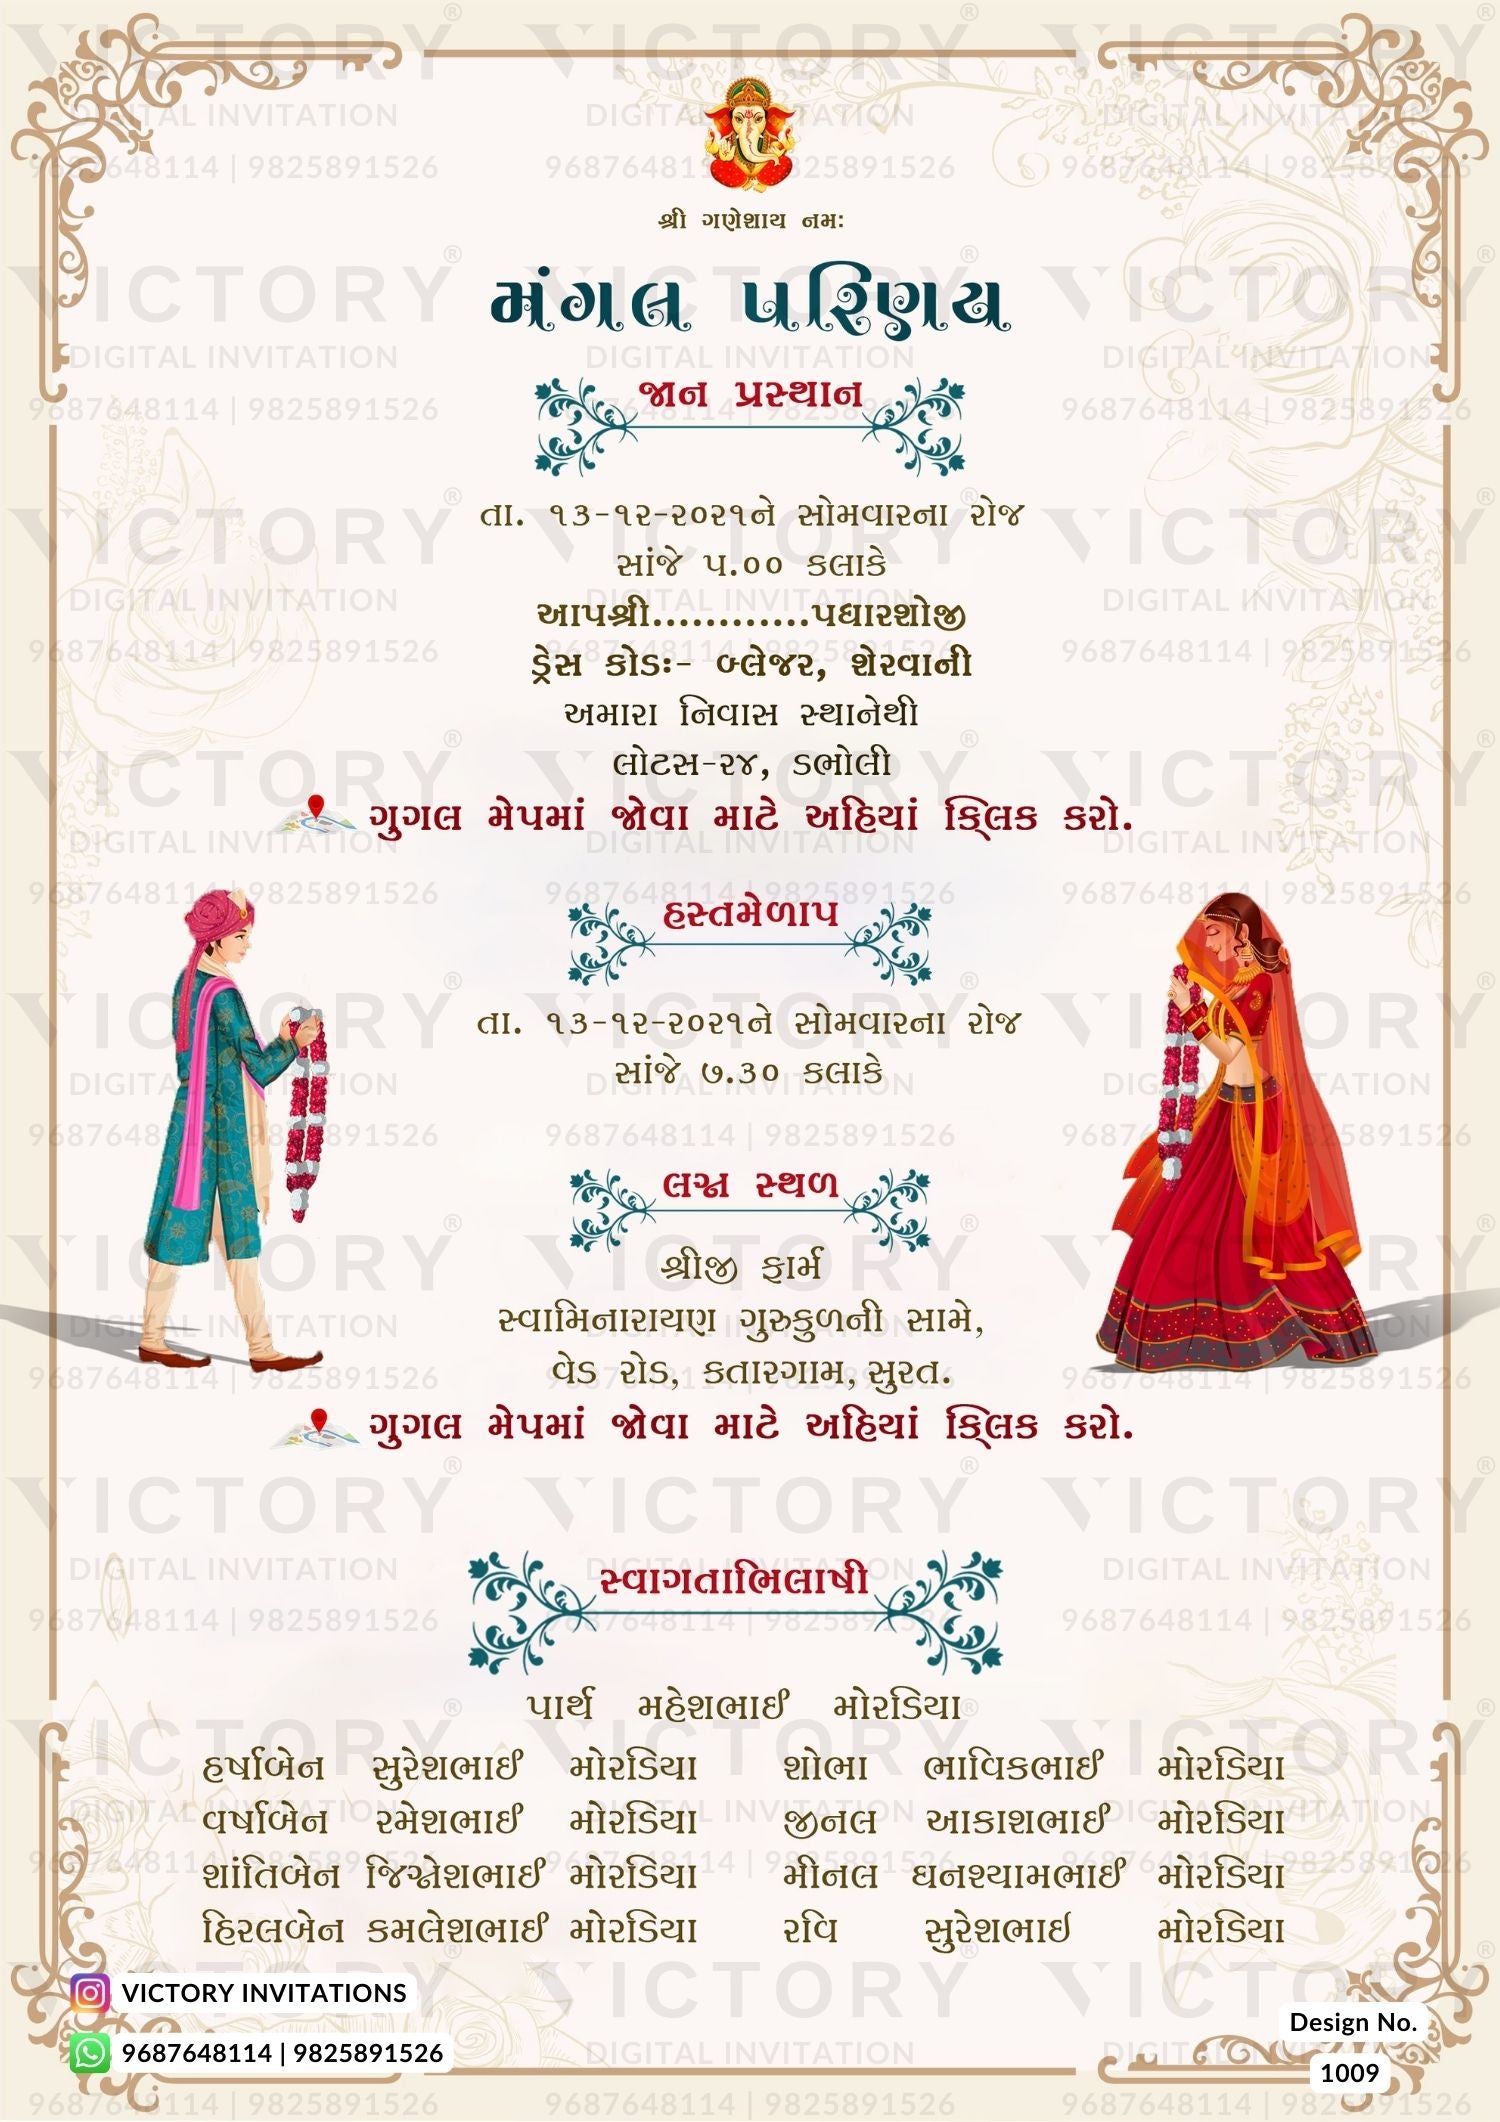 શ્રી ગણેશાય નમઃ
મંગલ પરિણય
જાન પ્રસ્થાન
તા. ૧૩-૧૨-૨૦૨૧ને સોમવારના રોજ
સાંજે ૫.૦૦ કલાકે
આપશ્રી............પધારશોજી
ડ્રેસ કોડઃ- બ્લેજર, શેરવાની
અમારા નિવાસ સ્થાનેથી
લોટસ-૨૪, ડભોલી
ગુગલ મેપમાં જોવા માટે અહિયાં ક્લિક કરો.
હસ્તમેળાપ
તા. ૧૩-૧૨-૨૦૨૧ને સોમવારના રોજ
સાંજે ૭.૩૦ કલાકે
લગ્ન સ્થળ
શ્રીજી ફાર્મ
સ્વામિનારાયણ ગુરુકુળની સામે,
વેડ રોડ, કતારગામ, સુરત.
ગુગલ મેપમાં જોવા માટે અહિયાં ક્લિક કરો.
સ્વાગતાભિલાષી
પાર્થ મહેશભાઈ મોરડિયા
હર્ષાબેન સુરેશભાઈ મોરડિયા શોભા ભાવિકભાઈ મોરડિયા
વર્ષાબેન રમેશભાઈ મોરડિયા જીનલ આકાશભાઈ મોરડિયા
શાંતિબેન જિગ્નેશભાઈ મોરડિયા મીનલ ઘનશ્યામભાઈ મોરડિયા
હિરલબેન કમલેશભાઈ મોરડિયા રવિ સુરેશભાઇ મોરડિયા
VICTORY INVITATIONS
9687648114 | 9825891526
Design No.
1009
VICTORY®
DIGITAL INVITATION
9687648114 | 9825891526